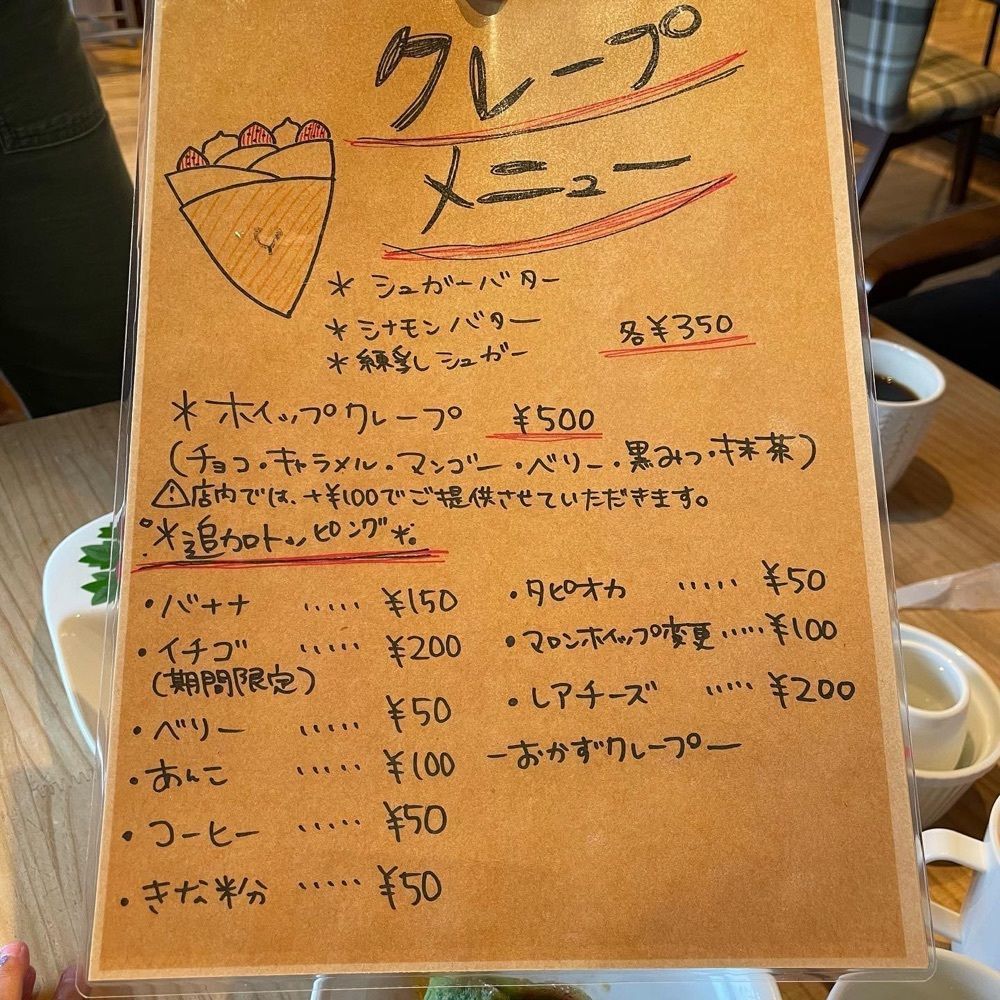 クレープ
メニュー
＊ シュガーバター
＊シナモンバター
各¥350
＊練乳シュガー
＊ホイップクレープ ¥500
(チョコ・キャラメル・マンゴー・ベリー・黒みつ・抹茶)
⚠店内では、+¥100でご提供させていただきます。
＊追加トッピング＊
・バナナ ..... ¥150
・イチゴ ..... ¥200
(期間限定)
・ベリー ..... ¥50
・あんこ ..... ¥100
・コーヒー ..... ¥50
・きな粉 ..... ¥50
・タピオカ ..... ¥50
・マロンホイップ変更 ..... ¥100
・レアチーズ ..... ¥200
ーおかずクレープー